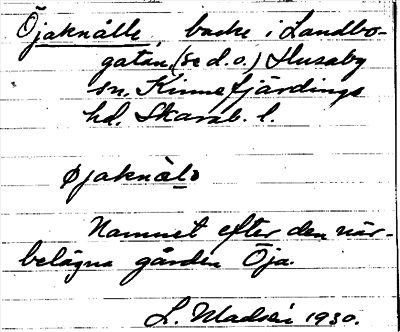 Öjaknålle, backe i Landbo-
gatan, (se d.o.) Husaby
sn, Kinnefjärdings
hd. Skarab. l.
øjaknàlə
Namnet efter den när-
belägna gården Öja.
L. 1930.